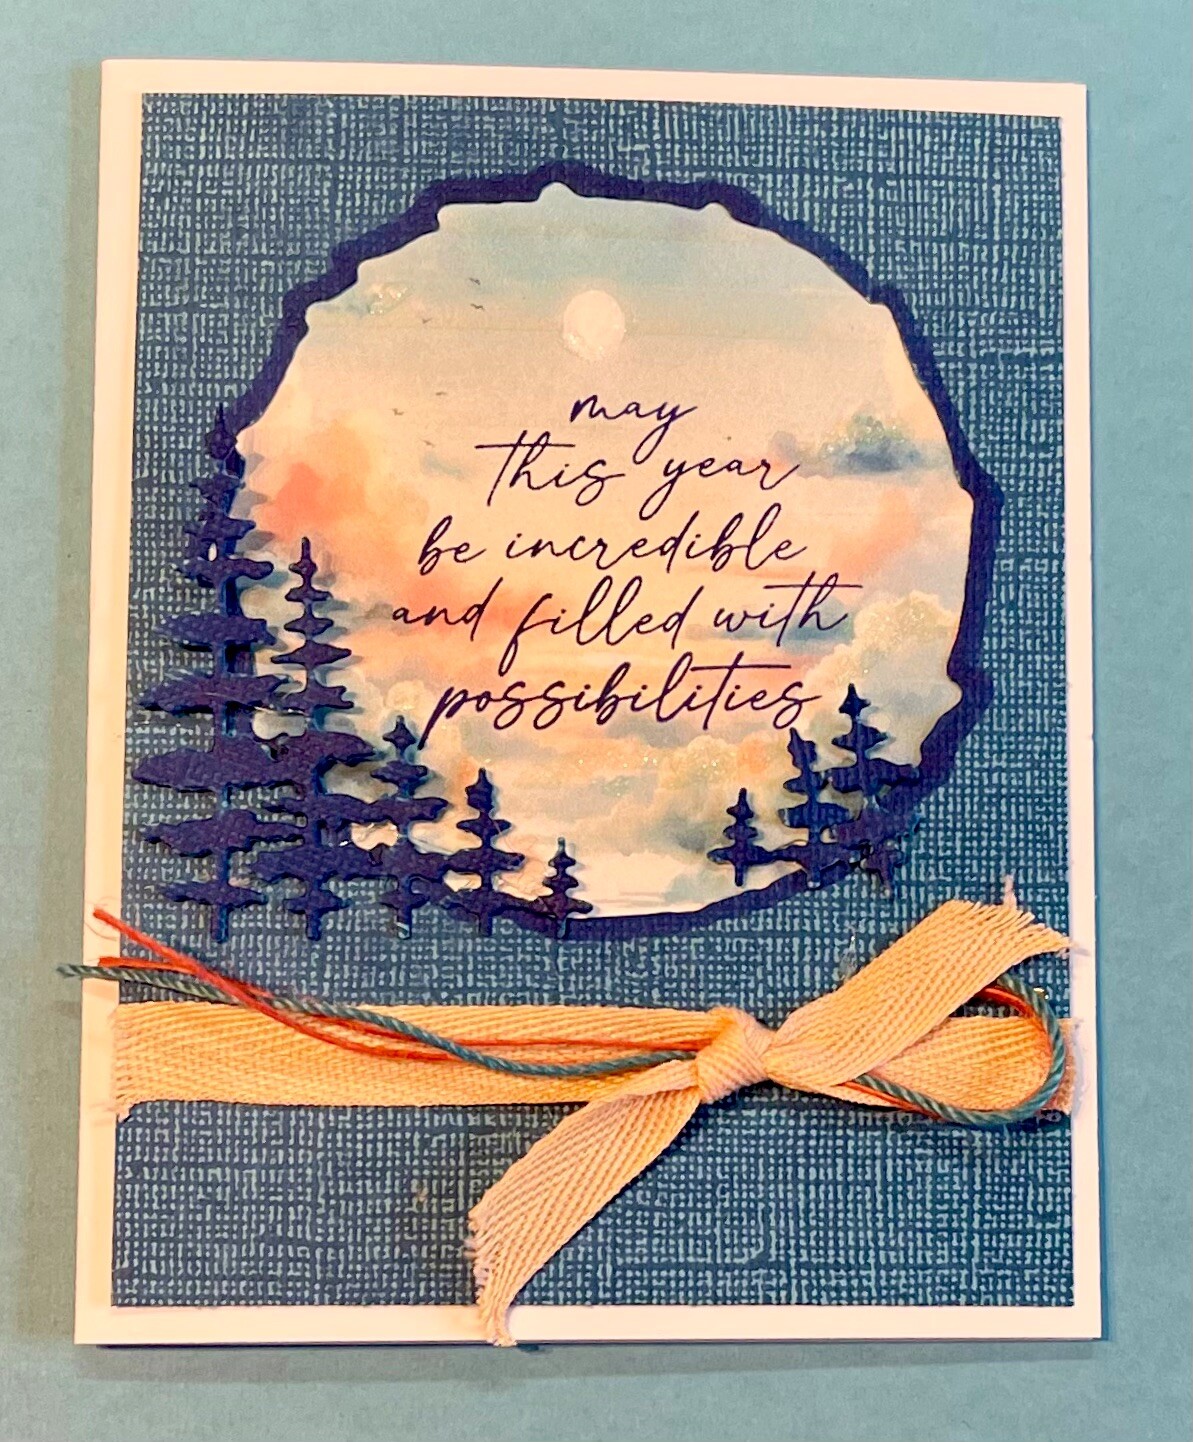 may
this year
be incredible
and filled with
possibilities